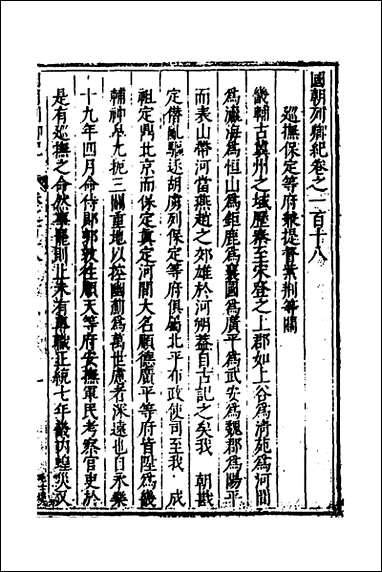 國朝列卿紀卷之一百十八
巡撫保定等府兼提督紫荆等關
畿輔古冀州之域歷秦至宋登之上郡如上谷爲清苑爲河間
爲瀛海爲恒山爲鉅鹿爲襄國爲廣平爲武安爲魏郡爲陽平
而表山帶河當燕趙之郊雄於河朔葢自古記之矣我　朝戡
定僣亂驅逐胡虜列保定等府俱屬北平布政使司至我　成
祖定鼎北京而保定真定河間大名順德廣平等府皆陞爲畿
輔神京尤扼三關重地以控幽薊爲萬世慮者深遠也自永樂
十九年四月命侍郎郭敦往順天等府安撫軍民考察官吏於
是有巡撫之命然事寵則止未有專職正統七年畿内蝗災又